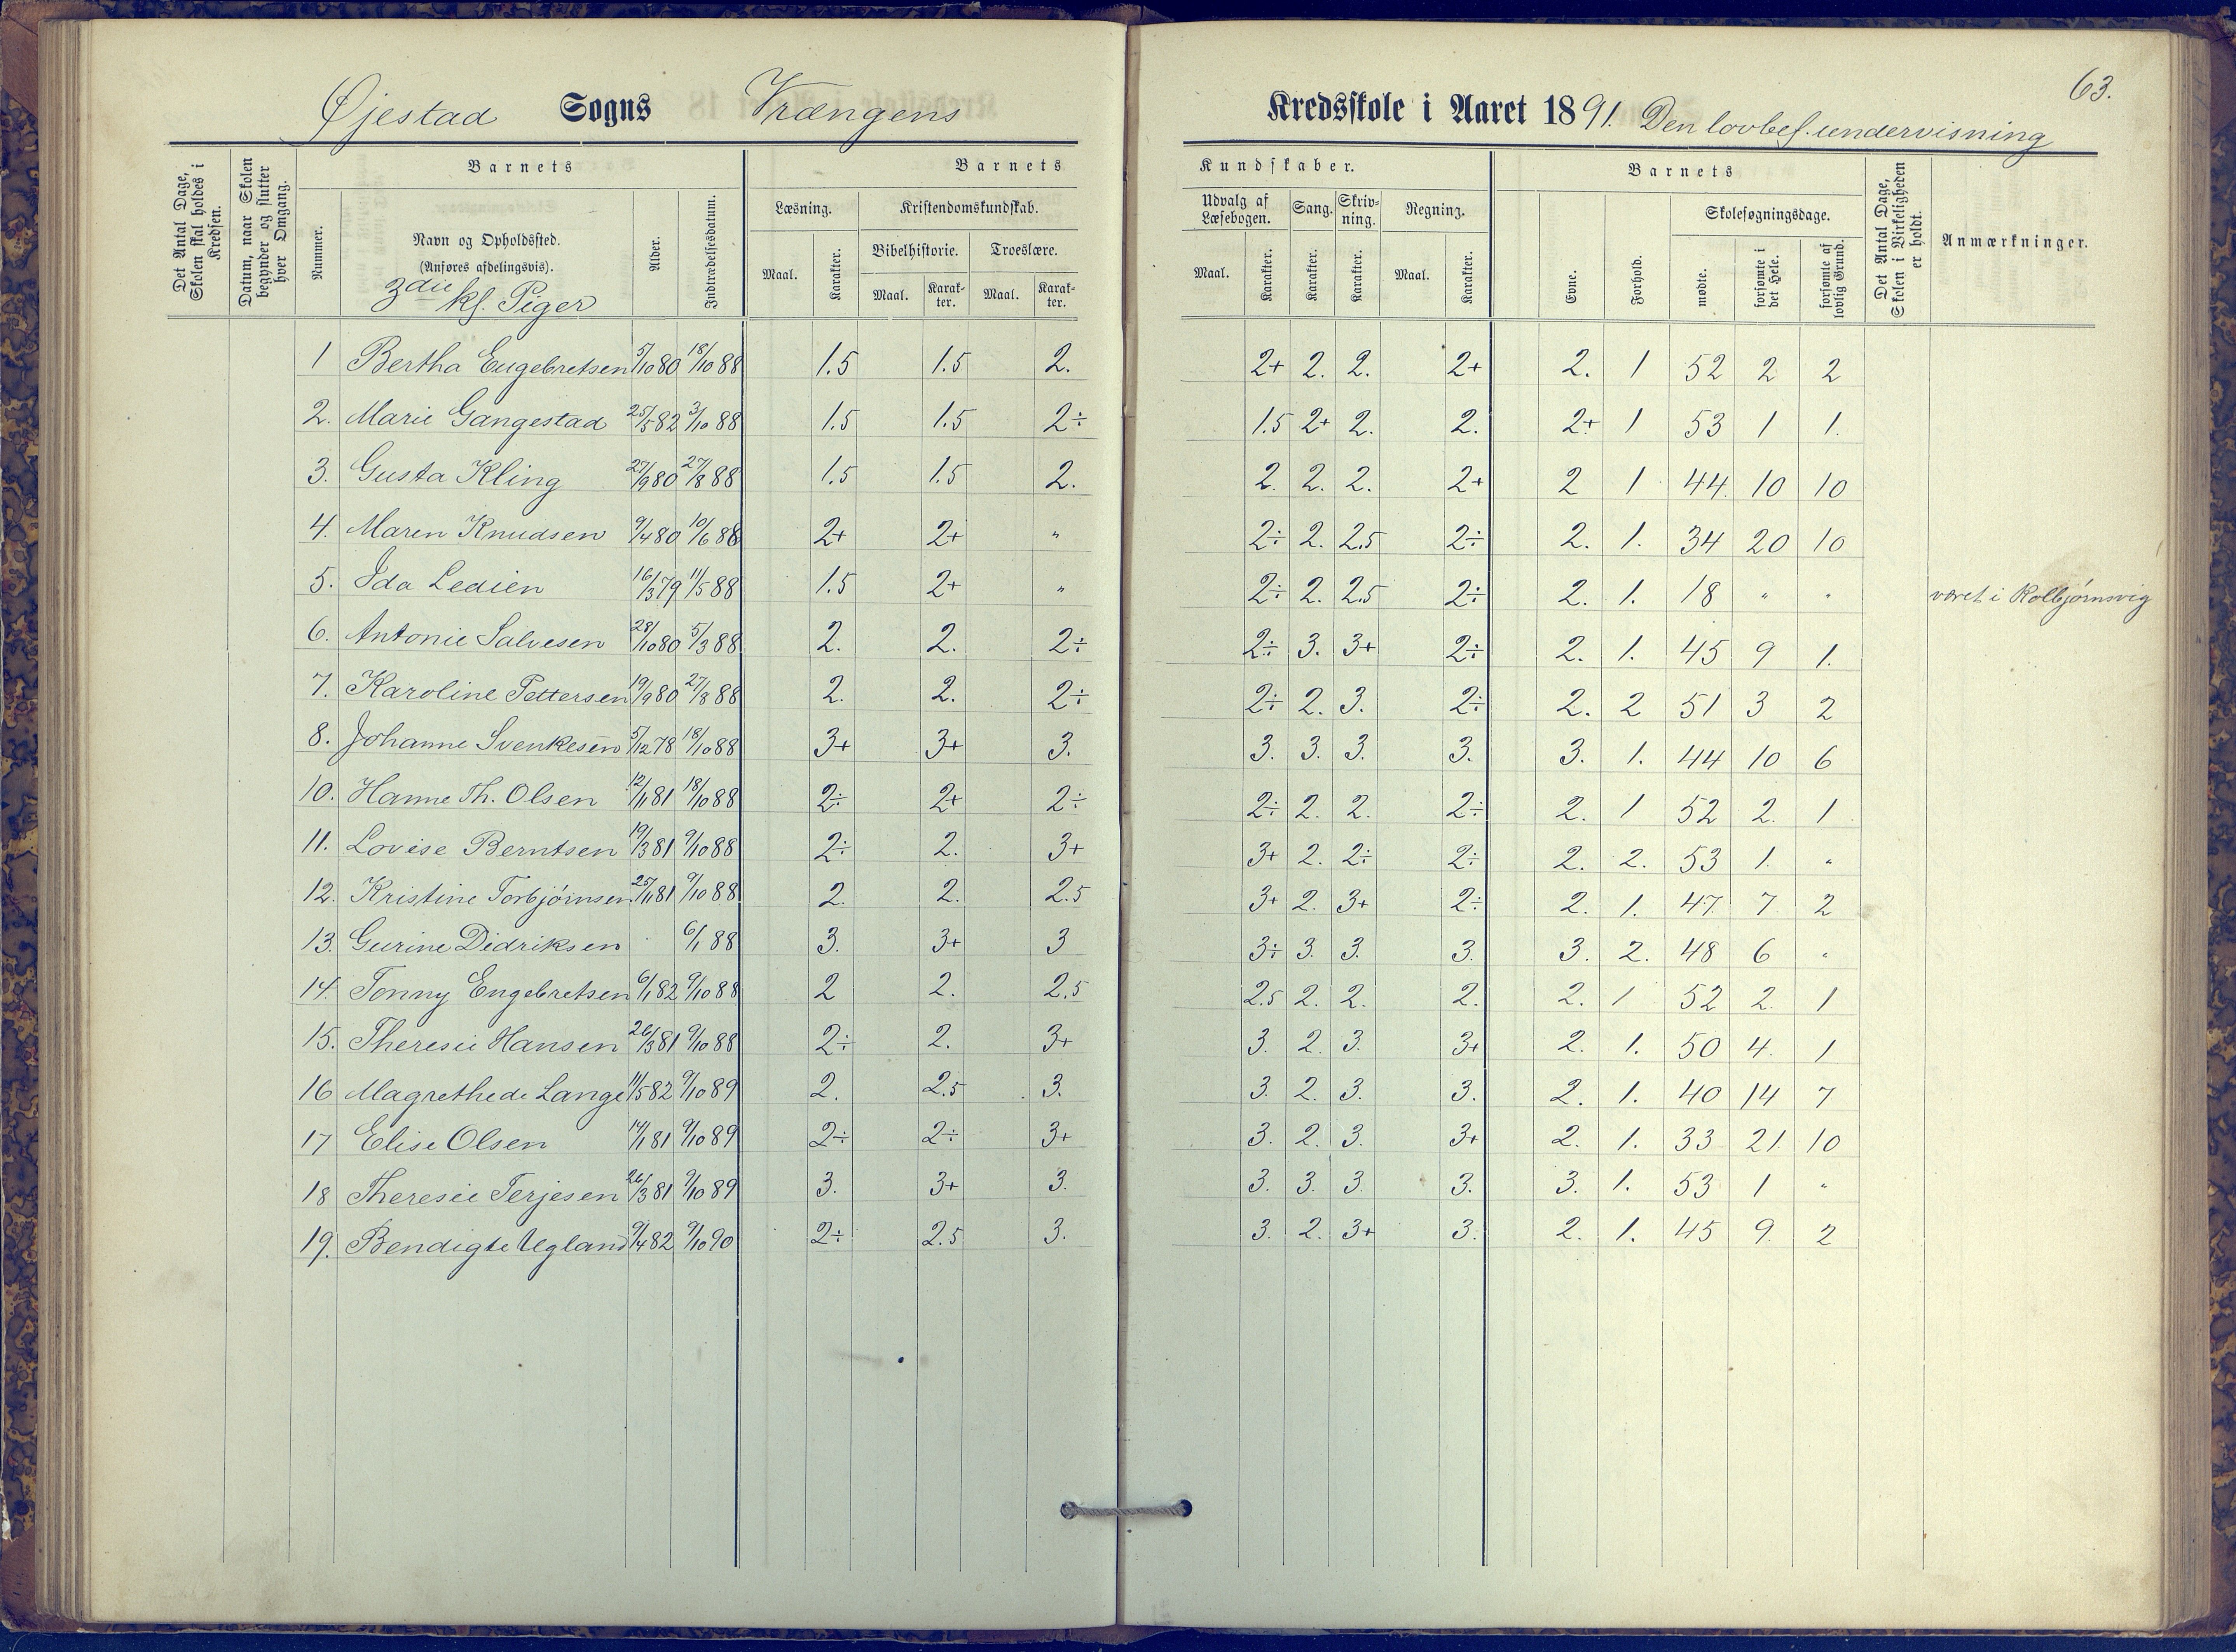 63.
Øjestad Sogns Vrængens Kredsskole i Aaret 1891. Den lovbef. undervisning
Det Antal Dage, Skolen skal holdes i Kredsen.
Datum, naar Skolen begynder og slutter hver Omgang.
Barnets
Nummer.
Navn og Opholdssted.
(Anføres afdelingsvis).
3die kl. Piger
Alder.
Indtrædelsesdatum.
Barnets Kundskaber.
Læsning.
Maal. Karakter.
Kristendomskundskab.
Bibelhistorie. Troeslære.
Maal. Karakter. Maal. Karakter.
Udvalg af Læsebogen. Sang. Skrivning. Regning.
Maal. Karakter. Karakter. Karakter. Maal. Karakter.
Barnets
Evne. Forhold.
Skolesøgningsdage.
mødte. forsømte i det Hele. forsømte af lovlig Grund.
Det Antal Dage, Skolen i Virkeligheden er holdt.
Anmærkninger.
1 Bertha Engebretsen 5/10 80 18/10 88 1.5 1.5 2. 2+ 2. 2. 2+ 2. 1 52 2 2
2. Marie Gangestad 25/5 82 3/10 88 1.5 1.5 2÷ 1.5 2+ 2. 2. 2+ 1 53 1 1.
3. Gusta Kling 27/9 80 27/8 88 1.5 1.5 2. 2. 2. 2. 2+ 2 1 44. 10 10
4. Maren Knudsen 9/4 80 10/6 88 2+ 2+ " 2÷ 2. 2.5 2÷ 2. 1. 34 20 10
5. Ida Ledien 16/3 79 11/5 88 1.5 2+ " 2÷ 2. 2.5 2÷ 2. 1. 18 " " været i Kolbjørnsvig
6. Antonie Salvesen 28/10 80 5/3 88 2. 2. 2÷ 2÷ 3. 3+ 2÷ 2. 1. 45 9 1.
7. Karoline Pettersen 19/9 80 27/8 88 2. 2. 2÷ 2÷ 2. 3. 2÷ 2. 2 51 3 2
8. Johanne Svenkesen 5/12 78 18/10 88 3+ 3+ 3. 3. 3. 3. 3. 3. 1. 44 10 6
10. Hanne Th. Olsen 12/11 81 18/10 88 2÷ 2+ 2÷ 2÷ 2. 2. 2÷ 2. 1 52 2. 1
11. Lovise Berntsen 19/3 81 9/10 88 2÷ 2. 3+ 3+ 2. 2÷ 2÷ 2. 2. 53 1. "
12. Kristine Torbjørnsen 25/11 81 9/10 88 2. 2. 2.5 3+ 2. 3+ 2÷ 2. 1. 47. 7 2
13. Gurine Didriksen 6/1 88 3. 3+ 3 3÷ 3. 3. 3. 3. 2. 48 6 "
14. Tonny Engebretsen 6/1 82 9/10 88 2 2. 2.5 2.5 2. 2. 2. 2. 1 52 2. 1
15. Theresie Hansen 26/3 81 9/10 88 2÷ 2. 3+ 3. 2. 3. 3+ 2. 1. 50 4. 1
16 Magrethe de Lange 11/5 82 9/10 89 2. 2.5 3. 3. 2. 3. 3. 2. 1. 40 14 7
17 Elise Olsen 14/1 81 9/10 89 2÷ 2÷ 3+ 3. 2. 3. 3+ 2. 1. 33 21. 10
18 Theresie Terjesen 26/3 81 9/10 89 3. 3+ 3. 3. 3. 3. 3. 3. 1. 53 1 "
19. Bendigte Ugland 9/4 82 9/10 90 2÷ 2.5 3. 3. 2. 3+ 3. 2. 1. 45 9. 2